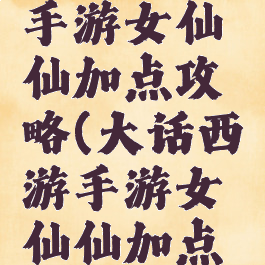 手游女仙
仙加点攻
略(大话西
游手游女
仙仙加点